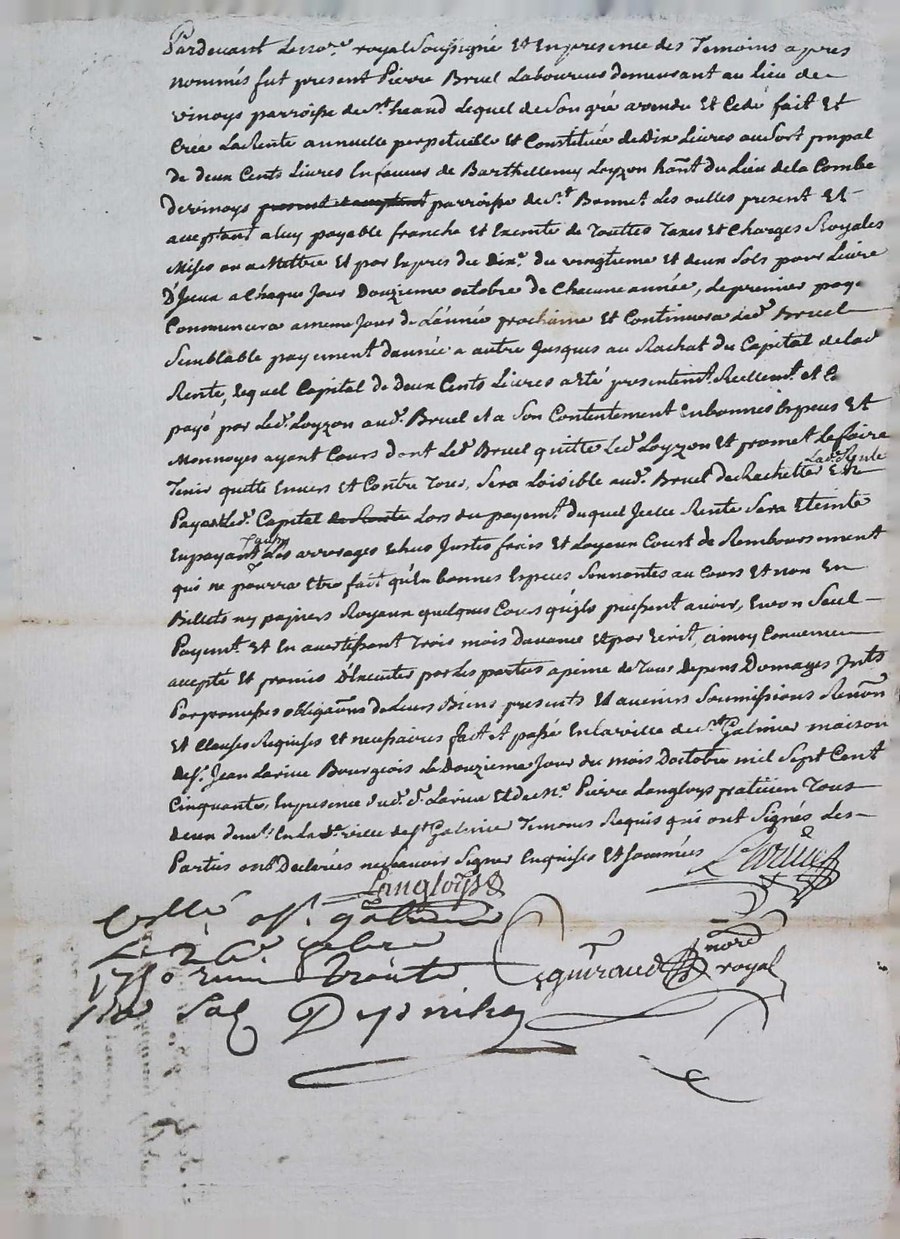 Pardevant le no.re royal Soussigné Et En presence des Temoins apres
nommés fut present Pierre Bruel Laboureur demeurant au lieu de
vinoys parroisse de St heand Lequel de Son gré a vendu Et Cedé fait Et
Créé La Rente annuelle perpetuelle Et Constituée de Dix Livres au Sort prnpal
de deux Cents Livres En faveur de Barthellemy Loyzon hant du Lieu de la Combe
de vinoys present et acceptant parroisse de St Bonnet Les oulles present Et
acceptant a luy payable franche Et Exemte de Touttes Taxes Et Charges Royales
Mises ou a Mettre Et par Exprés du dixe du vingtieme Et deux Sols pour Livre
D'Iceux a Chaque Jour Douzieme octobre de Chacune année, Le premier paye
Commencera a meme Jour de L'année prochaine Et Continuera Led Bruel
Semblable payement dannée a autre Jusques au Rachat du Capital de lad
Rente, Lequel Capital de Deux Cents Livres a Eté presentemt Reellemt et
payé par Led Loyzon aud Bruel Et a Son Contentement En bonnes Especes Et
Monnoyes ayant Cours dont Led Bruel quitte Led Loyzon Et promet Le faire
Tenir quitte Envers Et Contre Tous, Sera Loisible aud Bruel de Rachetter Lad Rente En
Payant Led Capital de Rente Lors du payemt duquel Icelle Rente Sera Eteinte
En payant Tous Les arrerages Echus Justes frais Et Loyaux Court de Remboursement
qui ne pourra Etre fait qu'En bonnes Especes Sonnantes au Cours Et non En
Billets ny papiers Royaux quelques Cours qu'ils puissent avoir, En un Seul
Payemt Et En avertissant Trois mois davance Et par Ecrit, ainsy Convenu
accepté Et promis D'Executer par Les parties a peine de Tous Depens Domages Jnts
Par promesses obligaons de Leurs Biens presents Et avenirs Soumissions Renon
Et Clauses Requises Et necessaires fait Et passé En la ville de St Galmier maison
de Sr Jean Larive Bourgeois Le Douzieme Jour du mois Doctobre mil Sept Cent
Cinquante, En presence dud Sr Larive Et de Me Pierre Langloys praticien Tous
deux demts En Lad ville de St Galmier Temoins Requis qui ont Signés Les
Parties ont Declarées ne Scavoir Signer Enquises Et Sommées Larive
Langloys
Collé a St galmier
Le 8bre
1750 trente
Sols
guiraud nore
royal